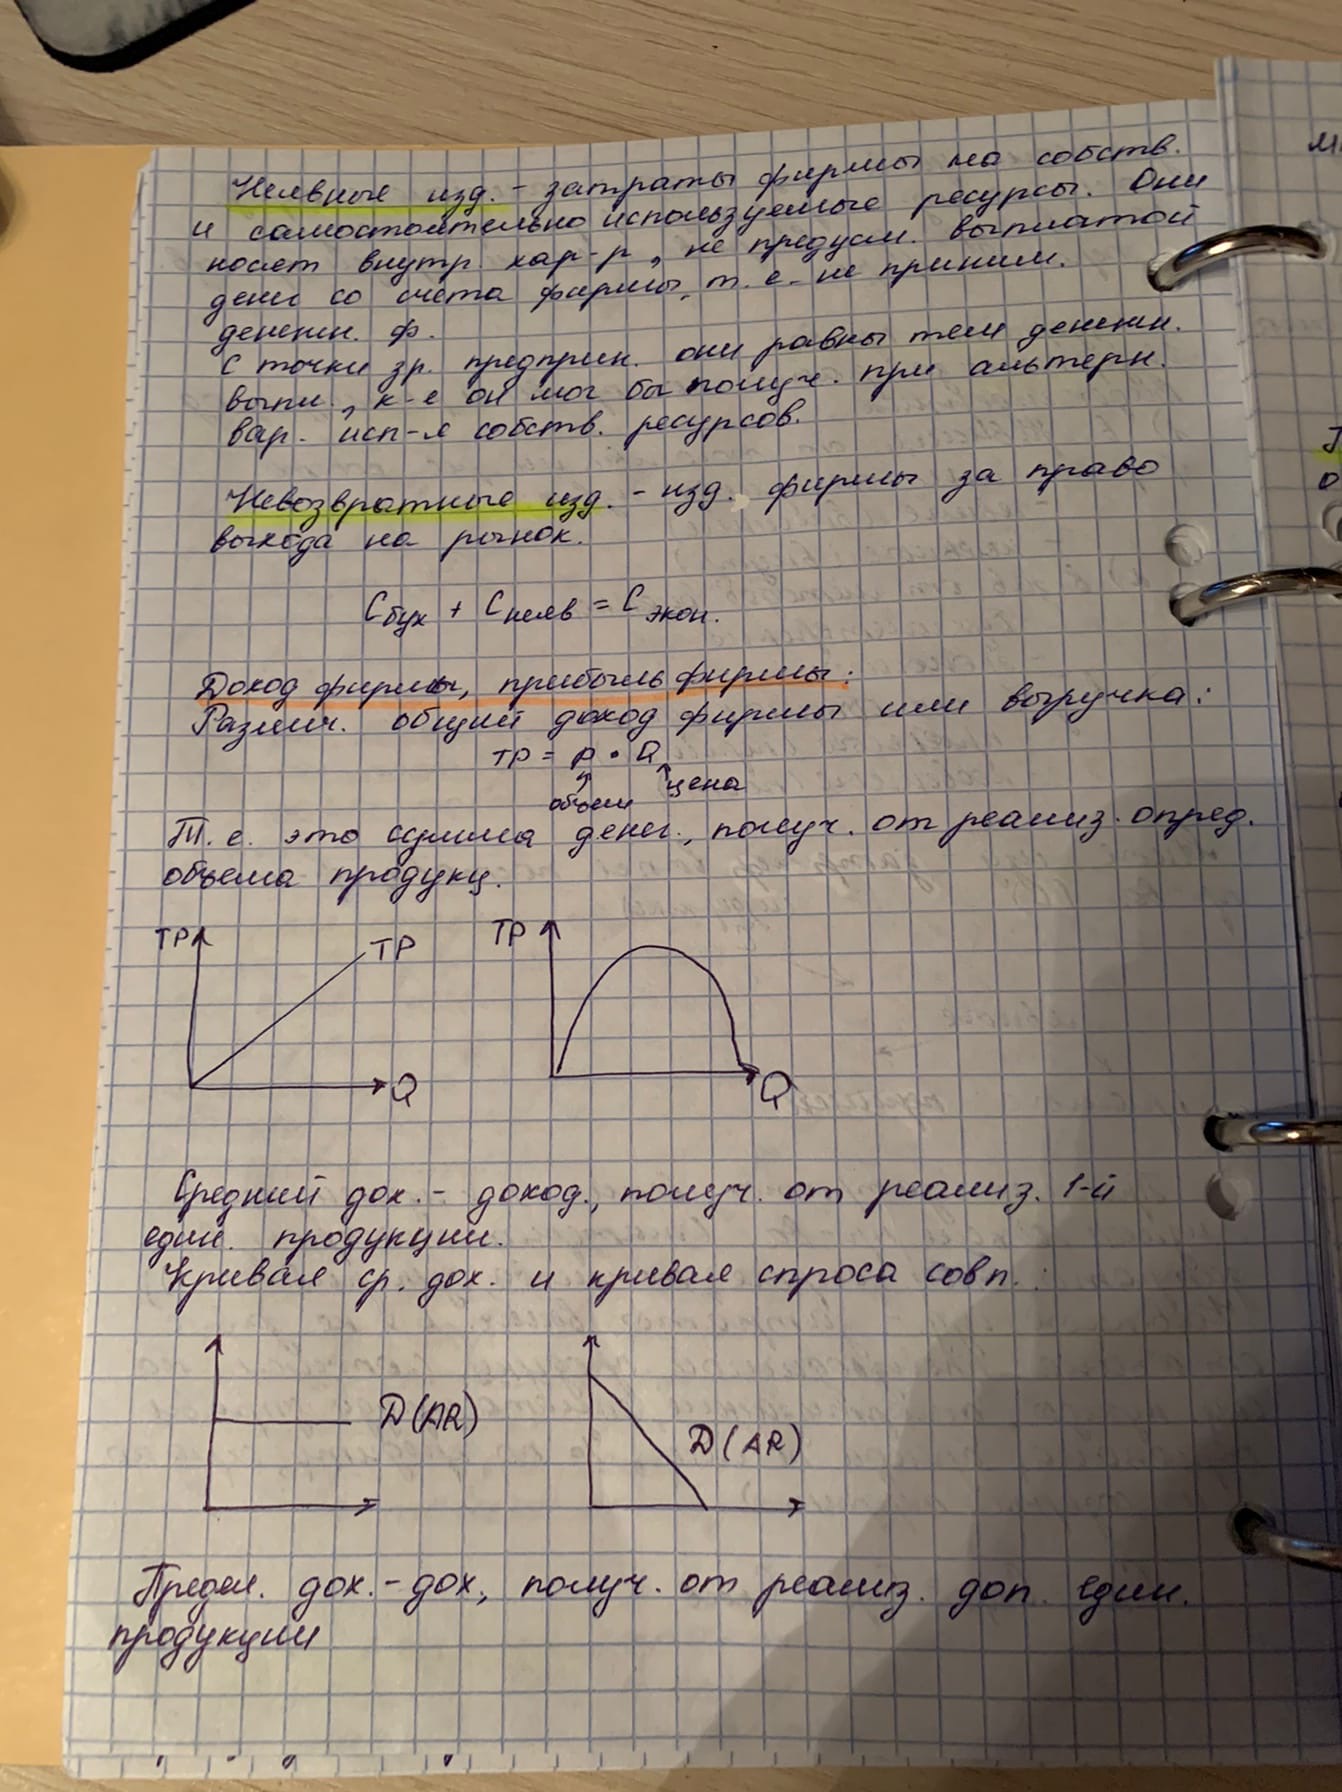 Неявные изд. - затраты фирмы на собств.
и самостоятельно используемые ресурсы. Они
носят внутр. хар-р, не предусм. выплатой
денег со счёта фирмы, т.е. не приним.
денежн. ф.
С точки зр. предприн. они равны тем денежн.
выпл., к-е он мог бы получ. при альтерн.
вар. исп-я собств. ресурсов.
Невозвратные изд. - изд. фирмы за право
выхода на рынок.
Cбух + Cнеяв = Cэкон.
Доход фирмы, прибыль фирмы:
Различ. общий доход фирмы или выручка:
TP = P · Q
объем
цена
Т.е. это сумма денег, получ. от реализ. опред.
объема продукц.
TP TP Q
TP Q
Средний дох. - доход, получ. от реализ. 1-й
един. продукции.
Кривая ср. дох. и кривая спроса совп.:
D(AR)
D(AR)
Предел. дох. - дох, получ. от реализ. доп. един.
продукции